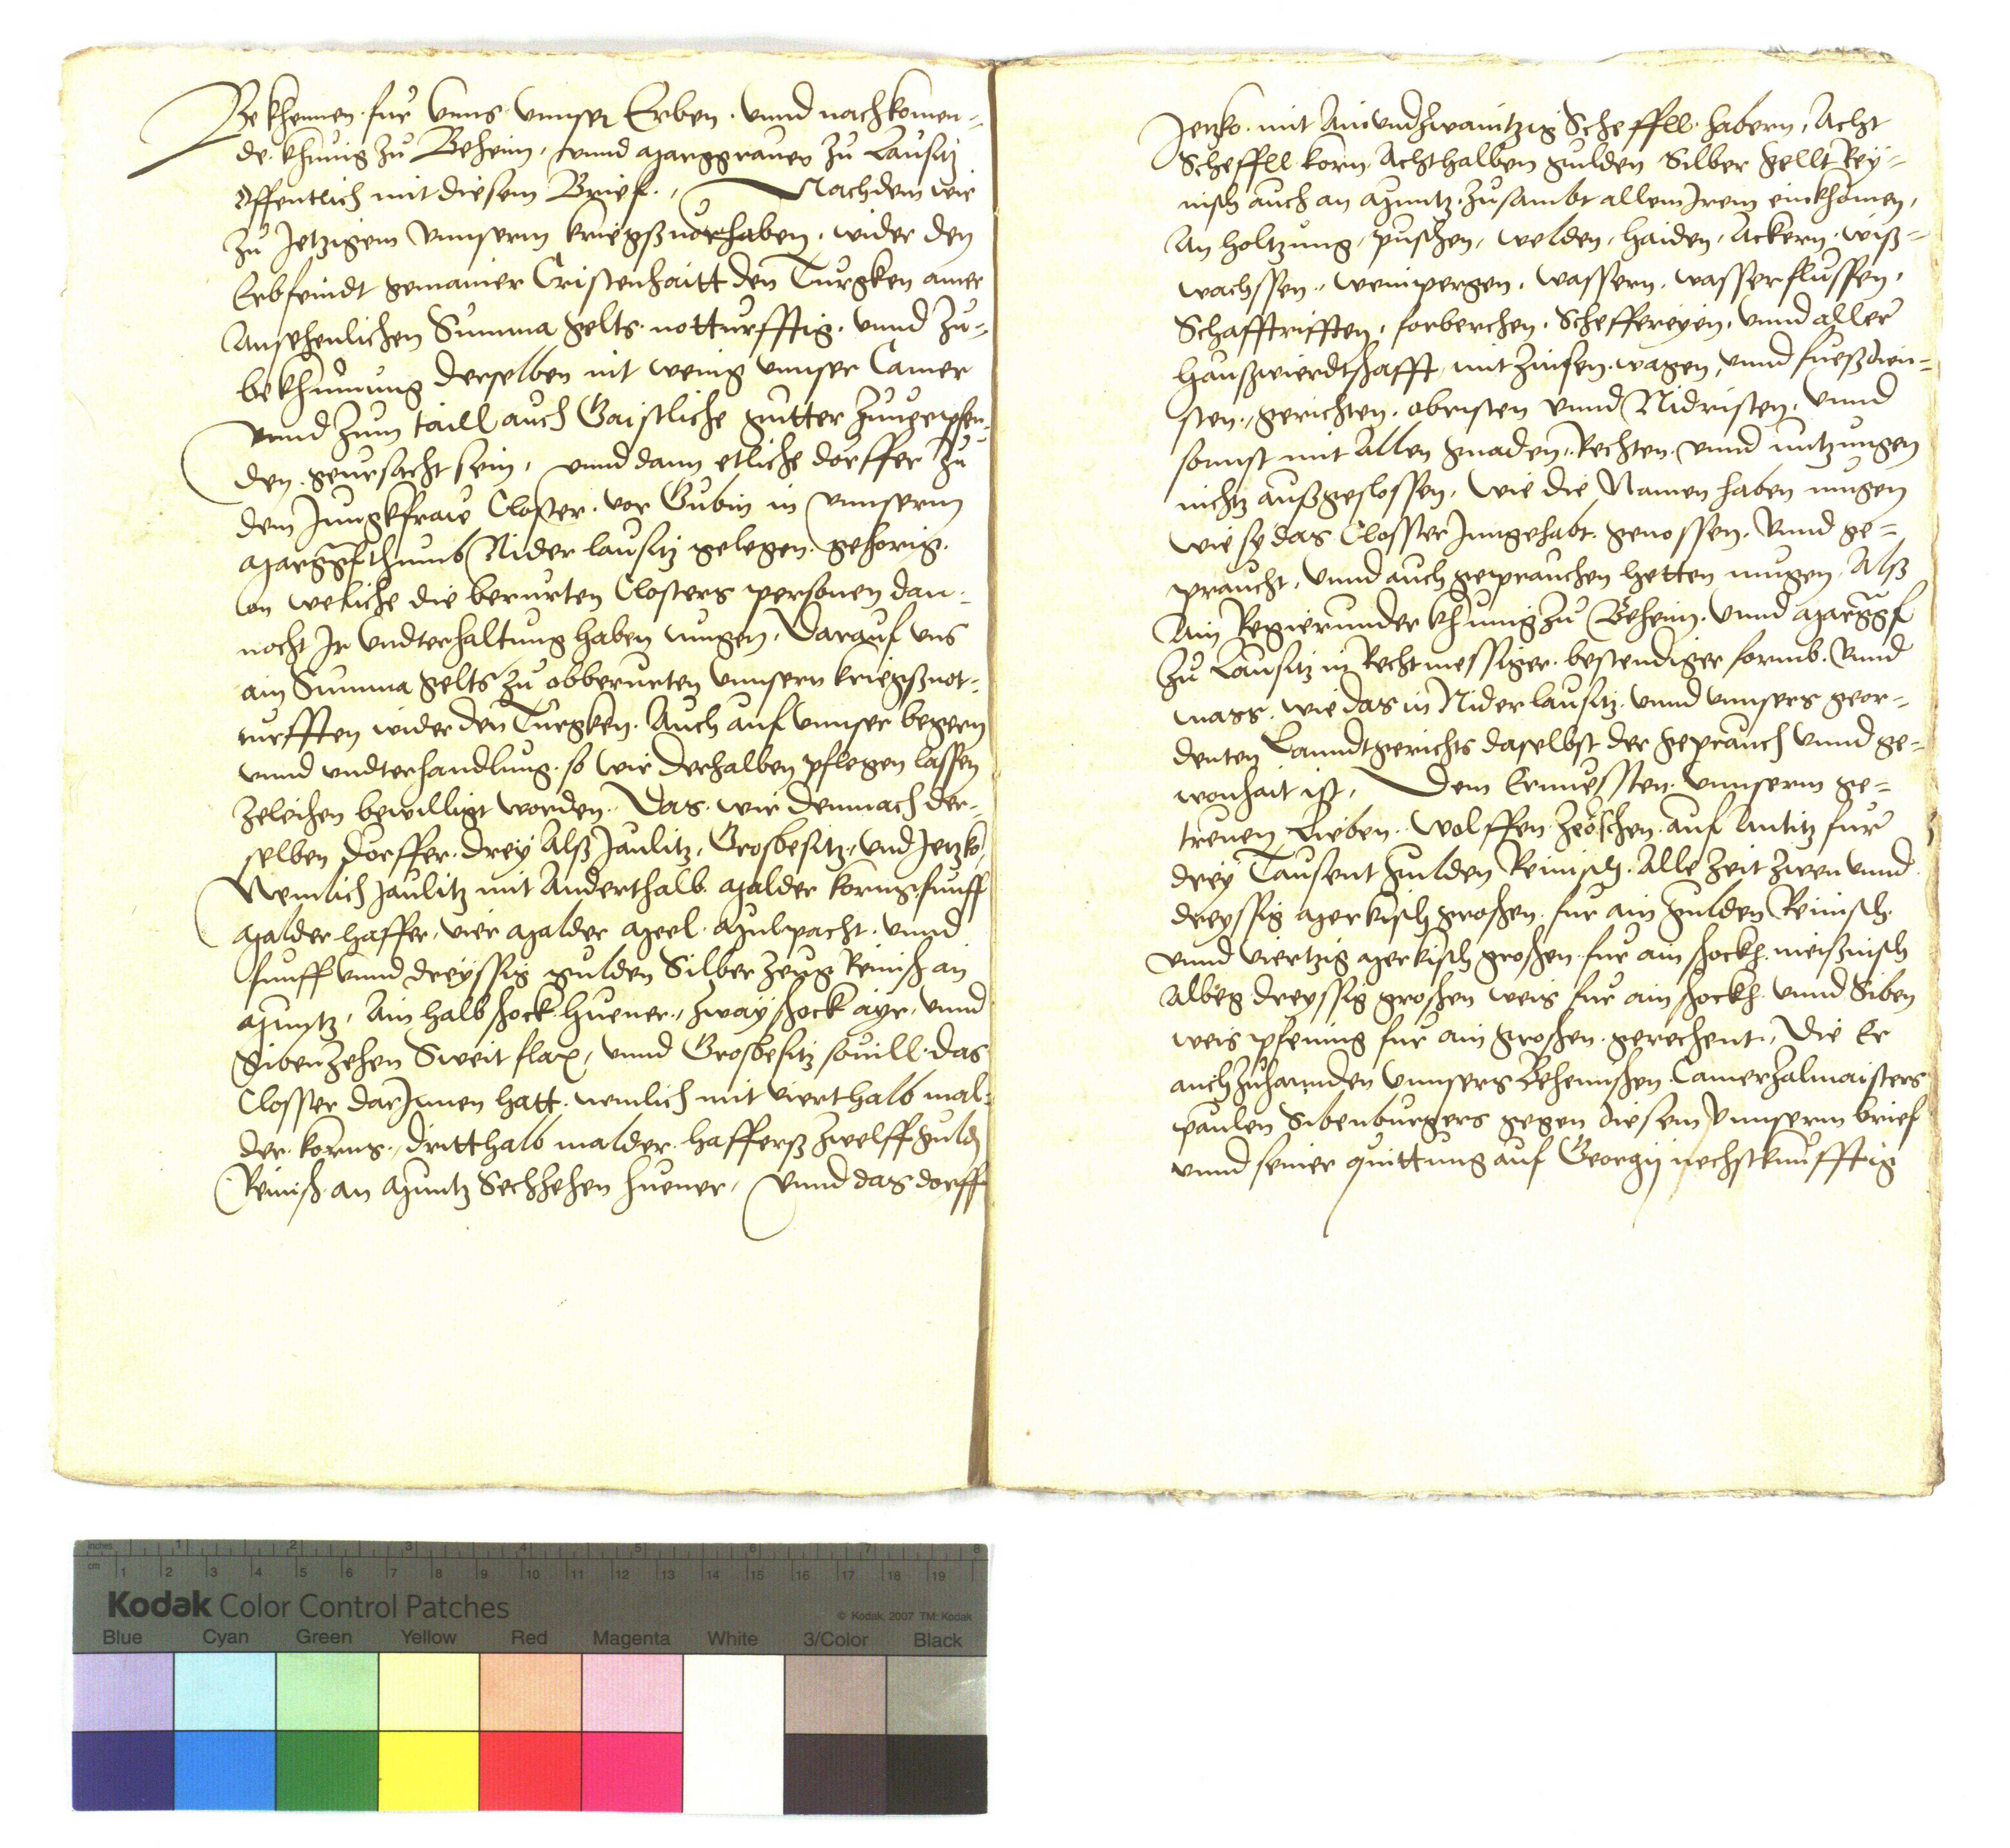 Bekhennen fur Unns Unnser Erben unnd nachkomen-
de khunig zu Beheim, unnd Marggraven zu Lausitz
Offentlich mit diesem Brief., Nachdem wir
zu Jetzigem Unnserm kriegßvorhaben, wider den
Erbfeindt gemainer Cristenhaitt den Turgken ainer
Ansehenlichen Summa gelts notturfftig, unnd zu-
bekhumung derselben nit wenig unnser Camer
unnd zum taill auch Gaistliche gutter zuverpfen-
den geursacht sein, unnd dann etliche dorffer zu
dem Jungkfraw Closter vor Gubin in Unnserm
Marggfthumb Nider lausitz gelegen gehorig.
on weliche die berurten Closters personen dan-
nocht Ir Undterhaltung haben mugen, Darauf uns
ain Summa gelts zu obberurten Unnsern kriegßnot-
turfften wider den Turgken. Auch auf Unnser begern
unnd undterhandlung so wir derhalben pflegen lassen
zeleihen bewilligt worden. Das wir demnach der-
selben dorffer drey Alß Jaulitz, Grosbesitz, und Jetzko,
Nemlich Jaulitz mit Anderthalb Malder korns, funff
Malder haffer, vier Malder Meel Mulpacht unnd
funff unnd dreyssig gulden Silber zeug Reinisch an
Muntz, Ain halb schock huener, zway schock ayr, unnd
Sibenzehen Sweit flax, unnd Grosbesitz sovill das
Closster darInnen hatt nemlich mit vierthalb mal-
der korns, dritthalb malder hafferß zwelff guld
Reinisch an Muntz Sechzehen huener, Unnd das dorff
Jetzko mit Ainundzwaintzig Scheffll habern, Acht
Scheffll korn Achthalben gulden Silber gellt Rey-
nisch auch an Muntz, zusambt allem Irem einkhomen,
An holtzung, puschen, welden, haiden, Ackern, wiß-
wachssen, weinpergen, wassern, wasserflussen,
Schafftrifften, forberchen, Scheffereyen, unnd aller
Haußwierdtschafft mit zinsen, wagen, unnd fueßdien-
sten, gerichten, obristen unnd Nidristen, Unnd
sonnst mit Allen gnaden, Rechten unnd nutzungen
nichtz außgeslossen, wie die Namen haben mugen
wie sy das Closster Inngehabt, genossen, Unnd ge-
praucht, unnd auch geprauchen hetten mugen, Alß
Ain Regierunder khunig zu Beheim, Unnd Marggf
zu Lausitz in Rechtmessiger bestendiger formb, Unnd
mass, wie das in Nider lausitz unnd unnsers geor-
denten Lanndtgerichts daselbst der geprauch unnd ge-
wonhait ist, Dem Ernvessten Unnserm ge-
treuen Lieben Wolffen zeöschen auf Antitz fur
drey Tausent gulden Reinisch, Alle zeit zwen unnd
dreyssig Merkisch groschen, fur ain gulden Reinisch
unnd viertzig Merkisch groschen fur ain schockh meißnisch
Albeg dreyssig groschen weis fur ain schockh unnd Siben
weis pfening fur ain groschen gerechent, Die Er
auch zuhannden Unnsers Behemischen Camerzalmaisters
paulen Sibenburgers gegen diesem Unnserm brief
unnd seiner quittung auf Georgij nechstkunfftig
inches
cm
Kodak Color Control Patches
© Kodak, 2007 TM: Kodak
Blue Cyan Green Yellow Red Magenta White 3/Color Black